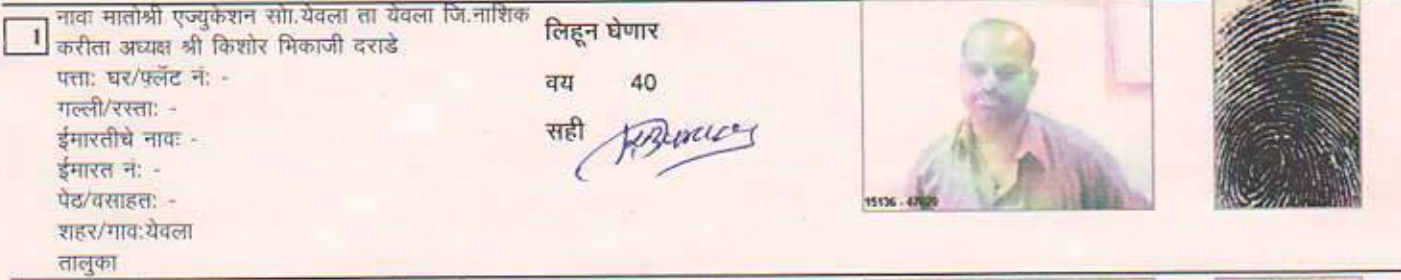 1
नावः मातोश्री एज्युकेशन सोा.येवला ता येवला जि.नाशिक
करीता अध्यक्ष श्री किशोर भिकाजी दराडे
पत्ताः घर/फ्लॅट नंः -
गल्ली/रस्ताः -
ईमारतीचे नावः -
ईमारत नंः -
पेठ/वसाहतः -
शहर/गावःयेवला
तालुका
लिहून घेणार
वय 40
सही
15136 -